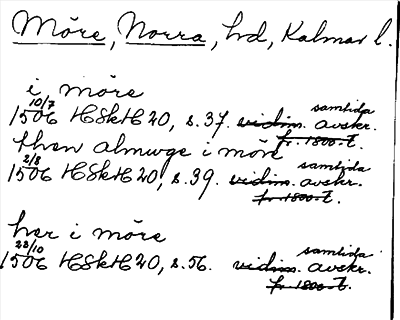 Möre, Norra, hd, Kalmar l.
i möre
1506 10/7 HSkH 20, s. 37. vidim. samtida avskr.
fr. 1800-t.
then almwge i möre
1506 2/8 HSkH 20, s. 39. vidim. samtida avskr.
fr. 1800-t.
her i möre
1506 23/10 HSkH 20, s. 56. vidim. samtida avskr.
fr. 1800-t.